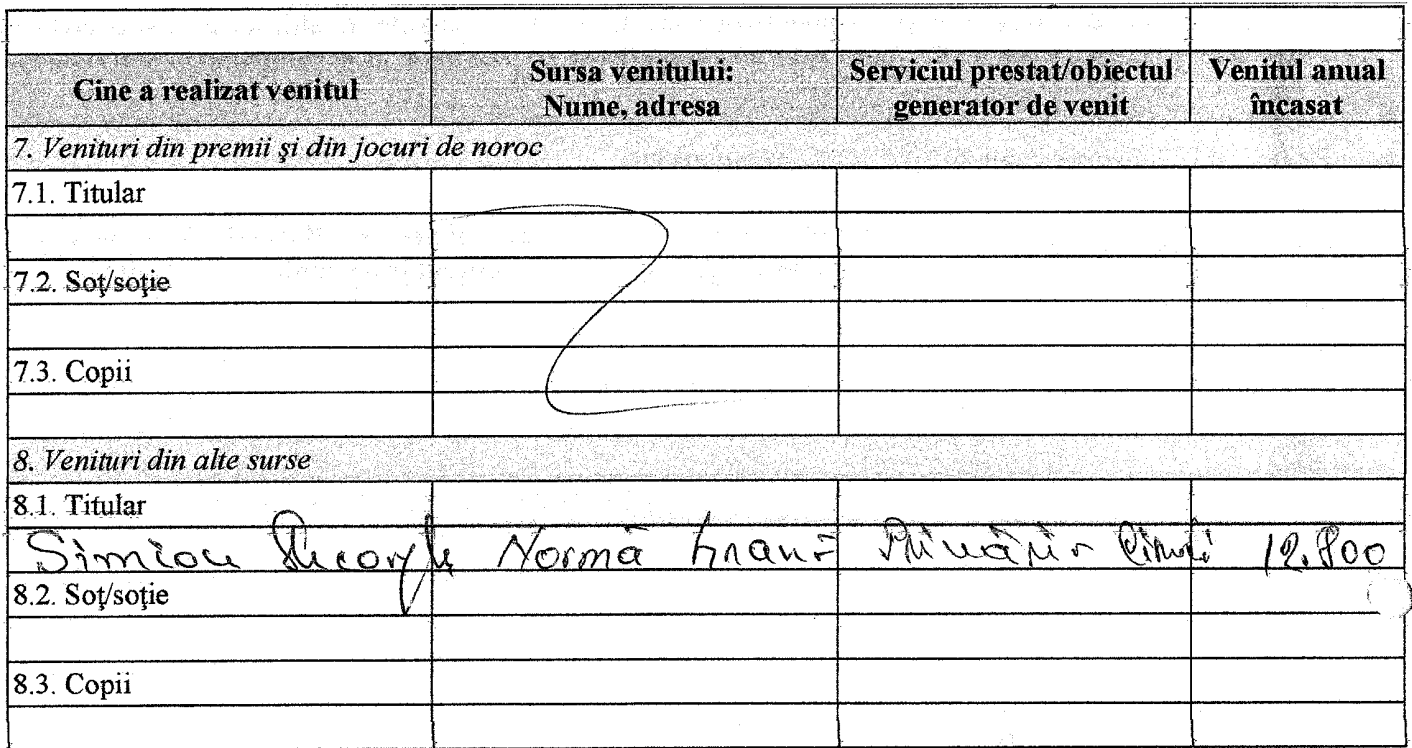 Cine a realizat venitul Sursa venitului: Nume, adresa Serviciul prestat/obiectul generator de venit Venitul anual încasat
7. Venituri din premii şi din jocuri de noroc
7.1. Titular
7.2. Soţ/soţie
7.3. Copii
8. Venituri din alte surse
8.1. Titular
Simion Normă hrană 12.800
8.2. Soţ/soţie
8.3. Copii